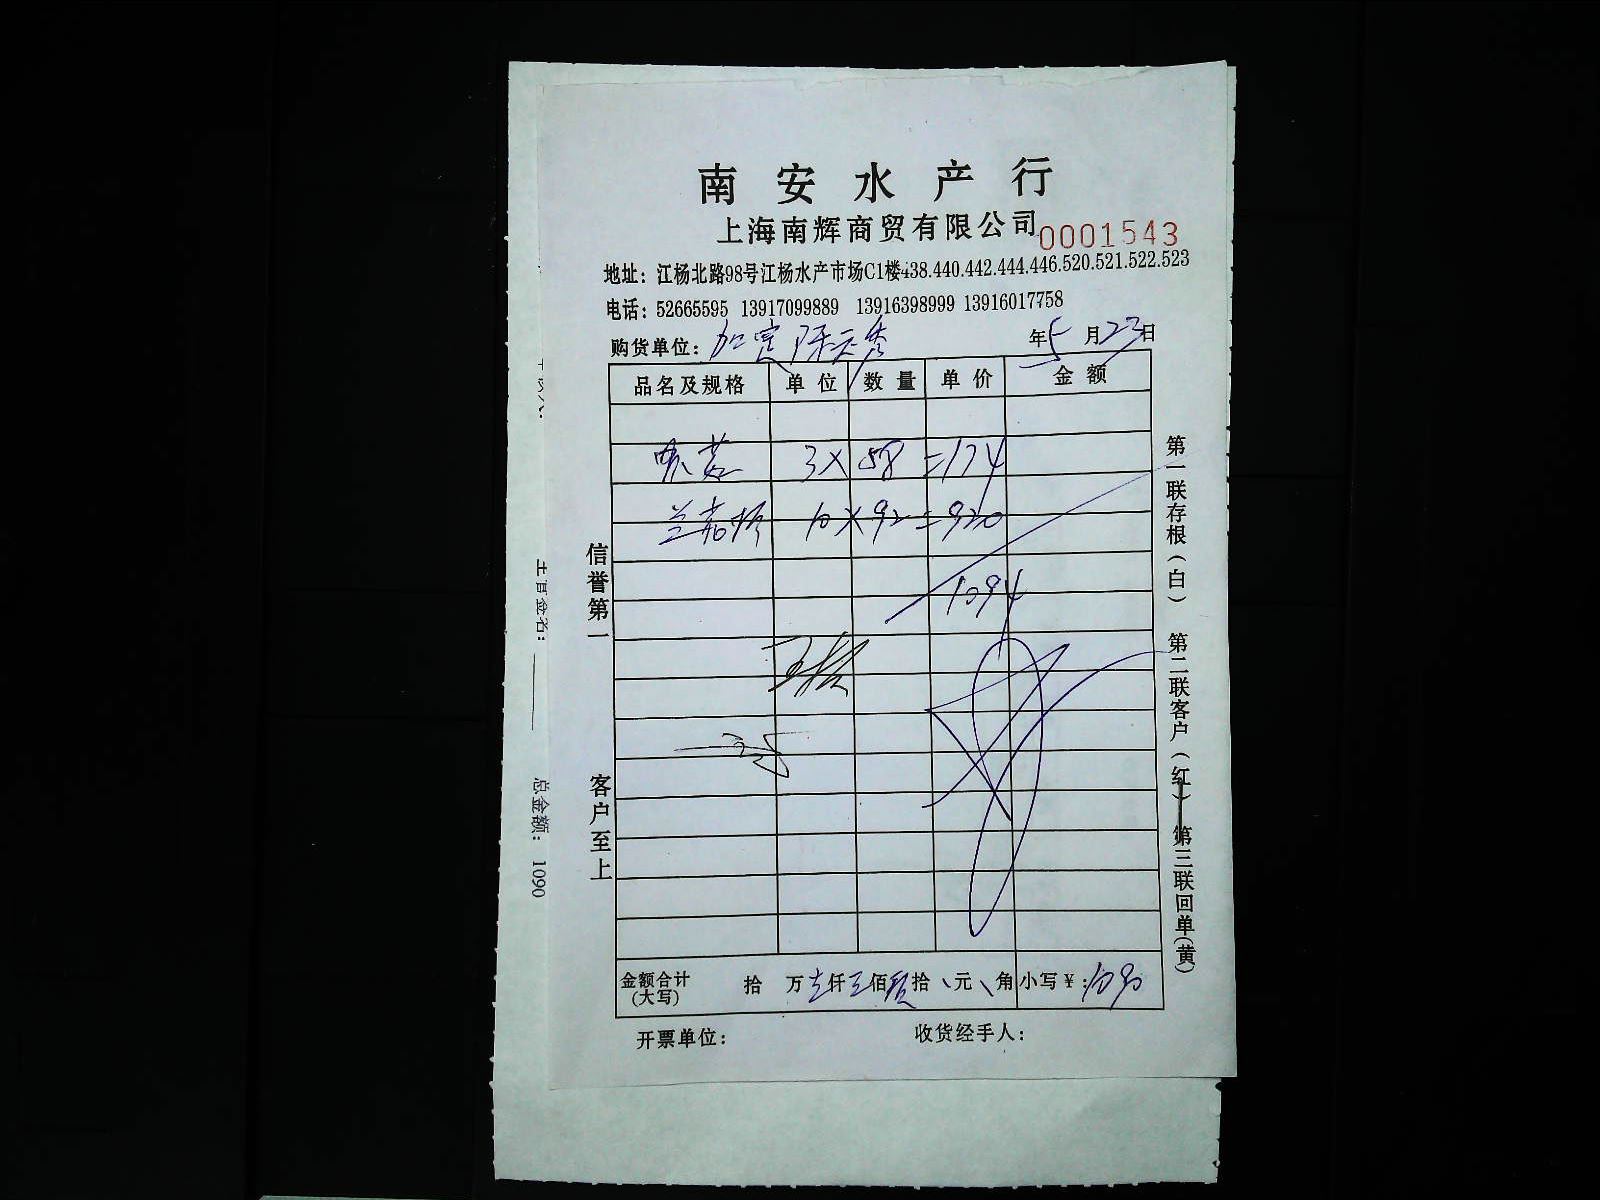 南安水产行
上海南辉商贸有限公司 0001543
地址：江杨北路98号江杨水产市场C1楼438.440.442.444.446.520.521.522.523
电话：52665595 13917099889 13916398999 13916017758
购货单位： 年5月23日
品名及规格 单位 数量 单价 金额
3×58=174
10×92=920
1094
金额合计(大写) 拾 万 仟 佰 玖拾 元 角 小写￥：1090
开票单位： 收货经手人：
信誉第一 客户至上
第一联存根(白) 第二联客户(红) 第三联回单(黄)
总金额： 1090